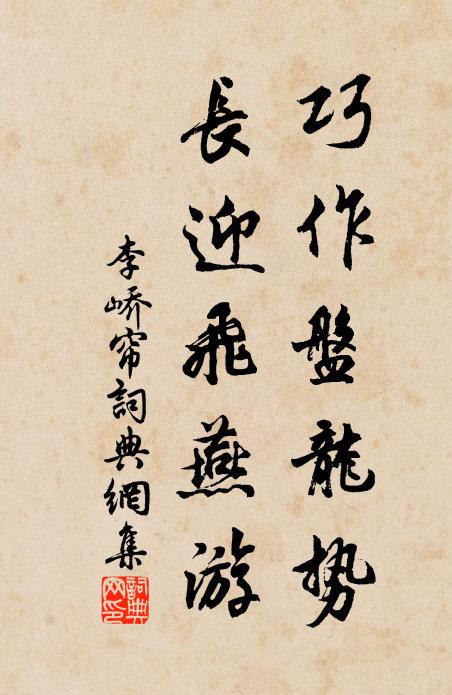 巧作盤龍势
長迎飛燕游
李峤帘詞典網集
詞典网印